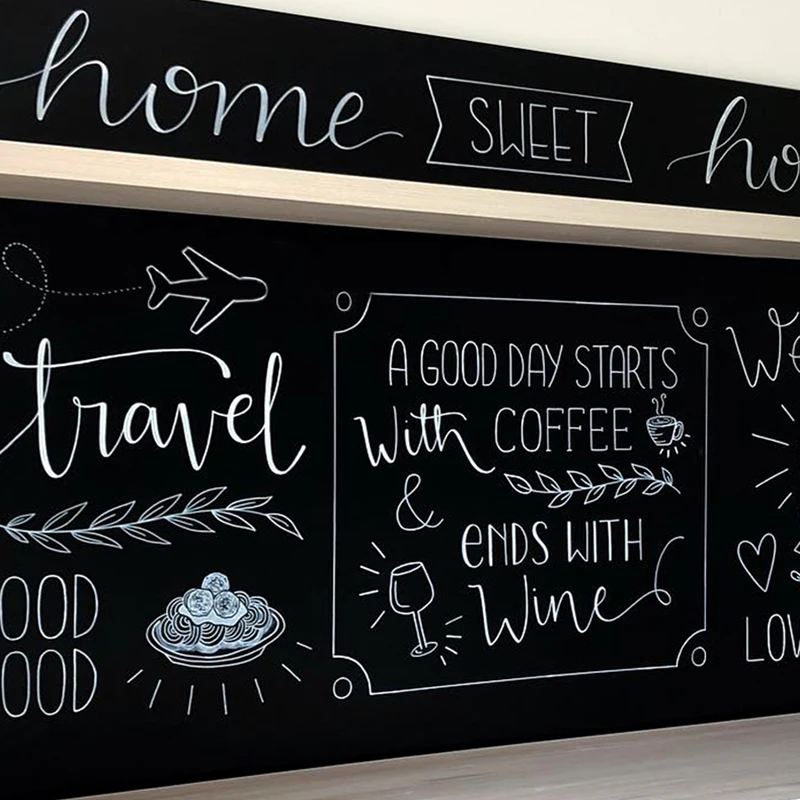 home SWEET ho
travel
OOD
OOD
A GOOD DAY STARTS
With COFFEE
&
ENDS WITH
Wine
We
LOV